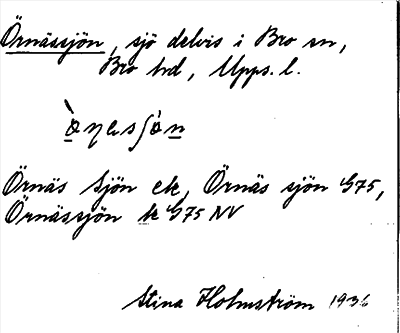 Örnässjön, sjö delvis i Bro sn,
Bro hd, Upps. l.
Örnäs Sjön ek, Örnäs sjön G75,
Örnässjön k G75 NV
Stina Holmström 1936